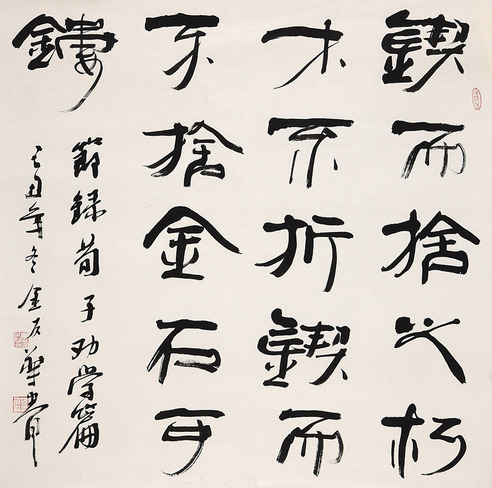 鍥而捨之朽
木不折鍥而
不捨金石可
鏤
節録荀子劝学篇
己丑年冬金石